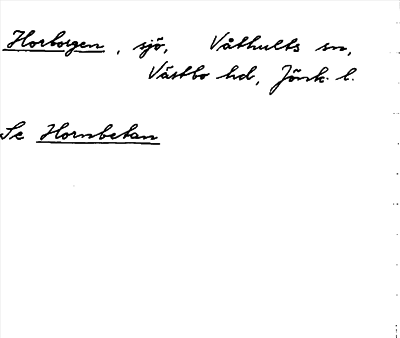 Horborgen, sjö, Våthults sn,
Västbo hd, Jönk. l.
Se Hornbetan